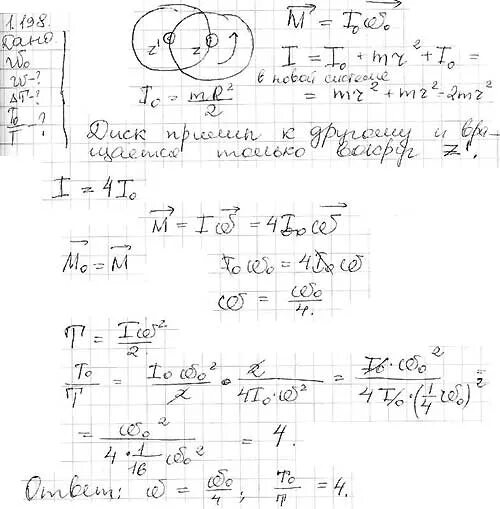 1.198.
Дано
ω₀
ω-?
ΔT-?
T₀/T -?
z' z
M⃗ = I₀ω⃗₀
I = I₀ + mr² + I₀ =
в новой системе
I₀ = mR²/2
= mr² + mr² = 2mr²
Диск прилип к другому и вра-
щается только вокруг z'.
I = 4I₀
M⃗ = Iω⃗ = 4I₀ω⃗
M⃗₀ = M⃗
I₀ω₀ = 4I₀ω
ω = ω₀/4.
T = Iω²/2
T₀/T = I₀ω₀²/2 · 2/4I₀·ω² = I₀·ω₀²/4I₀·(1/4 ω₀)² =
= ω₀²/4·1/16 ω₀² = 4.
Ответ: ω = ω₀/4; T₀/T = 4.